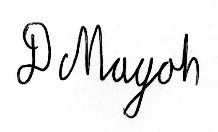 D Mayoh